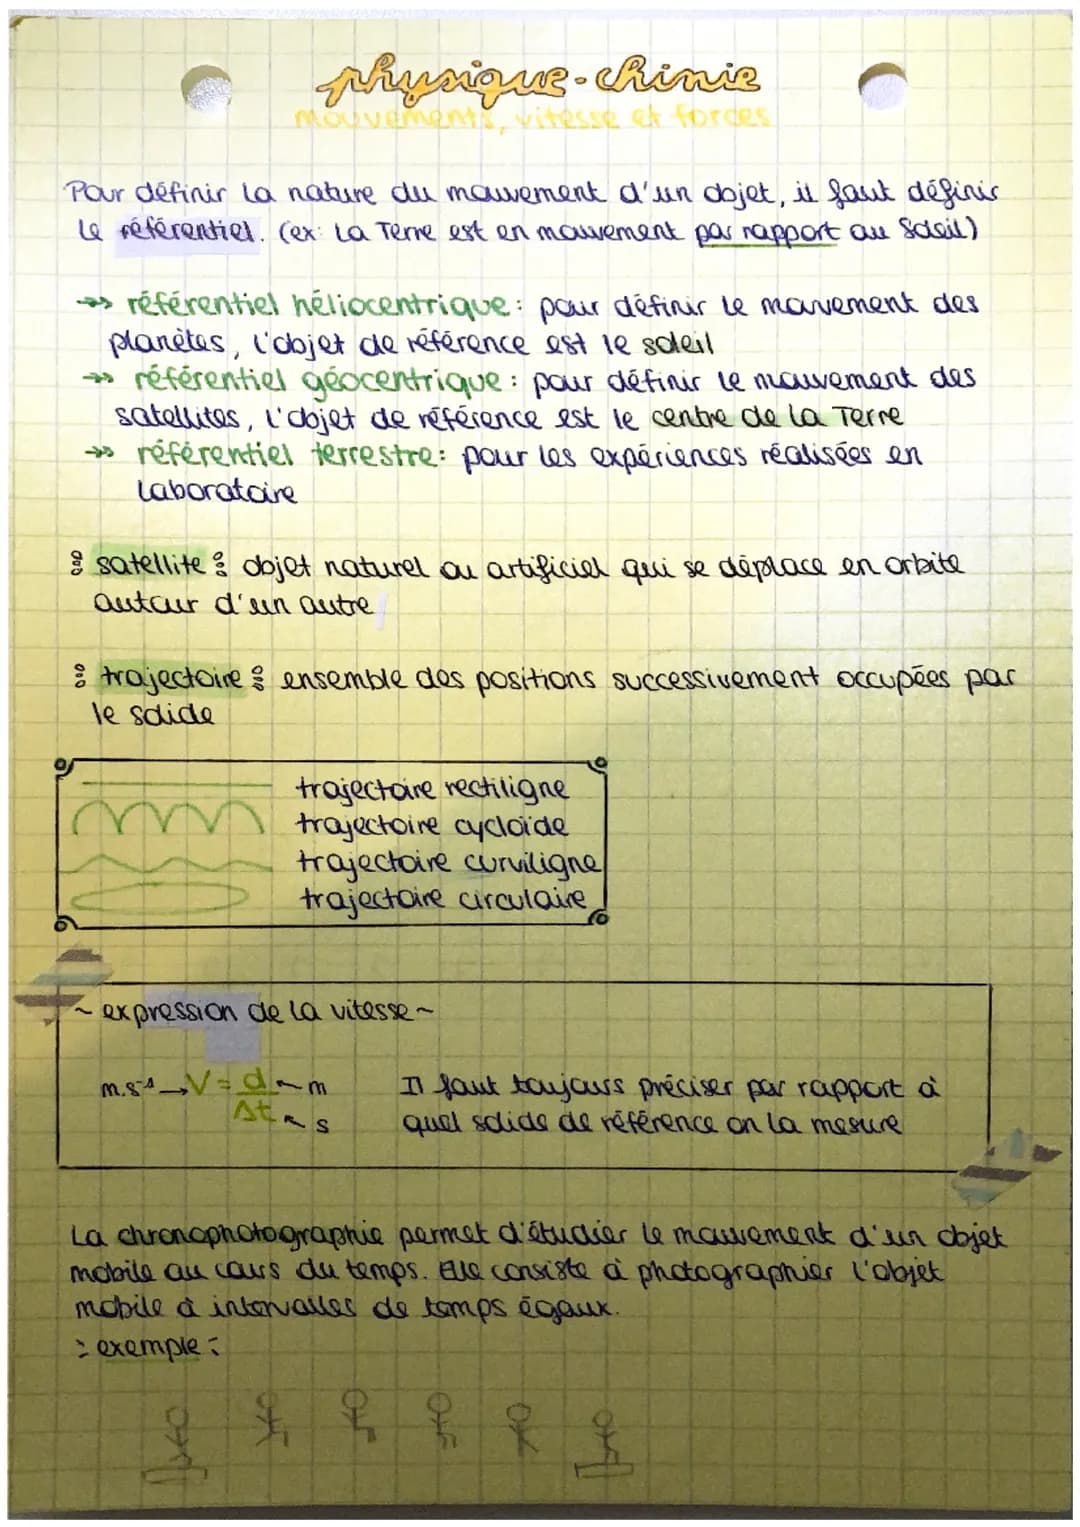 physique-chimie
mouvements, vitesse et forces
Pour définir la nature du mouvement d'un objet, il faut définir
le référentiel. (ex: La Terre est en mouvement par rapport au Soleil)
→» référentiel héliocentrique : pour définir le mouvement des
planètes, l'objet de référence est le soleil
→» référentiel géocentrique : pour définir le mouvement des
satellites, l'objet de référence est le centre de la Terre
→» référentiel terrestre : pour les expériences réalisées en
laboratoire
satellite : objet naturel ou artificiel qui se déplace en orbite
autour d'un autre
trajectoire : ensemble des positions successivement occupées par
le solide
trajectoire rectiligne
trajectoire cycloïde
trajectoire curviligne
trajectoire circulaire
~ expression de la vitesse ~
m.s⁻¹ → V = d ← m
Δt ← s
Il faut toujours préciser par rapport à
quel solide de référence on la mesure
La chronophotographie permet d'étudier le mouvement d'un objet
mobile au cours du temps. Elle consiste à photographier l'objet
mobile à intervalles de temps égaux.
: exemple :